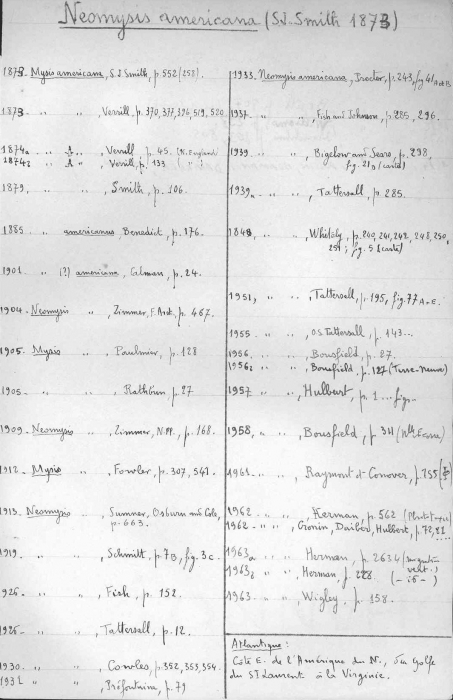 Neomysis americana (S.I. Smith 1873)
1873 Mysis americana, S.I. Smith, p. 552 (258).
1873 " ", Verrill, p. 370, 377, 396, 519, 520
1874a " A " Verrill, p. 45. (N. England)
1874b " A " Verrill, p. 133 ( " )
1879, " ", Smith, p. 106.
1885 " americanus, Benedict, p. 176.
1901 " (?) americana, Calman, p. 24.
1904. Neomysis ", Zimmer, F. Arkt. p. 467.
1905. Mysis ", Paulmier, p. 128
1905. " ", Rathbun, p. 27
1909. Neomysis ", Zimmer, N.Pl., p. 168.
1912. Mysis ", Fowler, p. 307, 541.
1913. Neomysis ", Sumner, Osburn and Cole,
p. 663.
1919. " ", Schmitt, p. 7B, fig. 3c.
1925. " ", Fish, p. 152.
1926. " ", Tattersall, p. 12.
1930. " ", Cowles, p. 352, 353, 354.
1931 " ", Préfontaine, p. 79
1933. Neomysis americana, Procter, p. 243, fig 41 A et B
1937. " ", Fish and Johnson, p. 285, 296.
1939 " ", Bigelow and Sears, p. 298,
fig. 21 (carte)
1939a " ", Tattersall, p. 285.
1948, " ", Whitely, p. 240, 241, 242, 248, 250,
251; fig. 5 (carte)
1951, " ", Tattersall, p. 195, fig. 77 A-E.
1955 " ", O.S. Tattersall, p. 143...
1956. " ", Bousfield, p. 27.
1956b " ", Bousfield, p. 127 (Terre-Neuve)
1957 " ", Hulburt, p. 1 ... figs.
1958, " ", Bousfield, p. 311
1961. " ", Raymont et Conover, p. 155
1962 " ", Herman, p. 562
1962. " ", Cronin, Daiber, Hulbert, p. 72,
1963a " ", Herman, p. 263
1963b " ", Herman, p. 228. (- id -)
1963 " ", Wigley, p. 158.
Atlantique:
Côte E. de l'Amérique du N., du Golfe
du St Laurent à la Virginie.